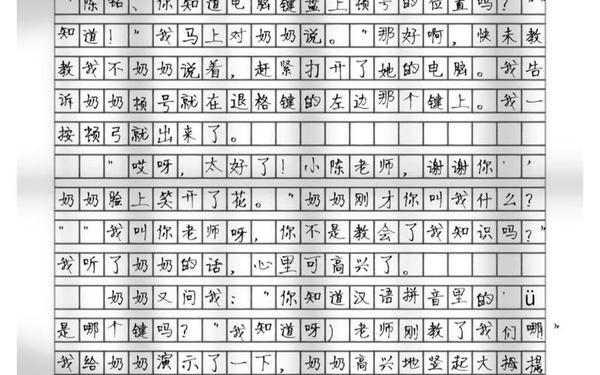 "陈铭、你知道电脑键盘上顿号的位置吗?"
知道!"我马上对奶奶说。"那好啊,快来教
教我不奶奶说着,赶紧打开了她的电脑。我告
诉奶奶顿号就在退格键的左边那个键上。我一
按顿号就出来了。
"哎呀,太好了!小陈老师,谢谢你''
奶奶脸上笑开了花。"奶奶刚才你叫我什么?
""我叫你老师呀,你不是教会了我知识吗?"
我听了奶奶的话,心里可高兴了。
奶奶又问我:"你知道汉语拼音里的'ü
是哪个键吗?"我知道呀)老师刚教了我们哪"
我给奶奶演示了一下,奶奶高兴地竖起大拇